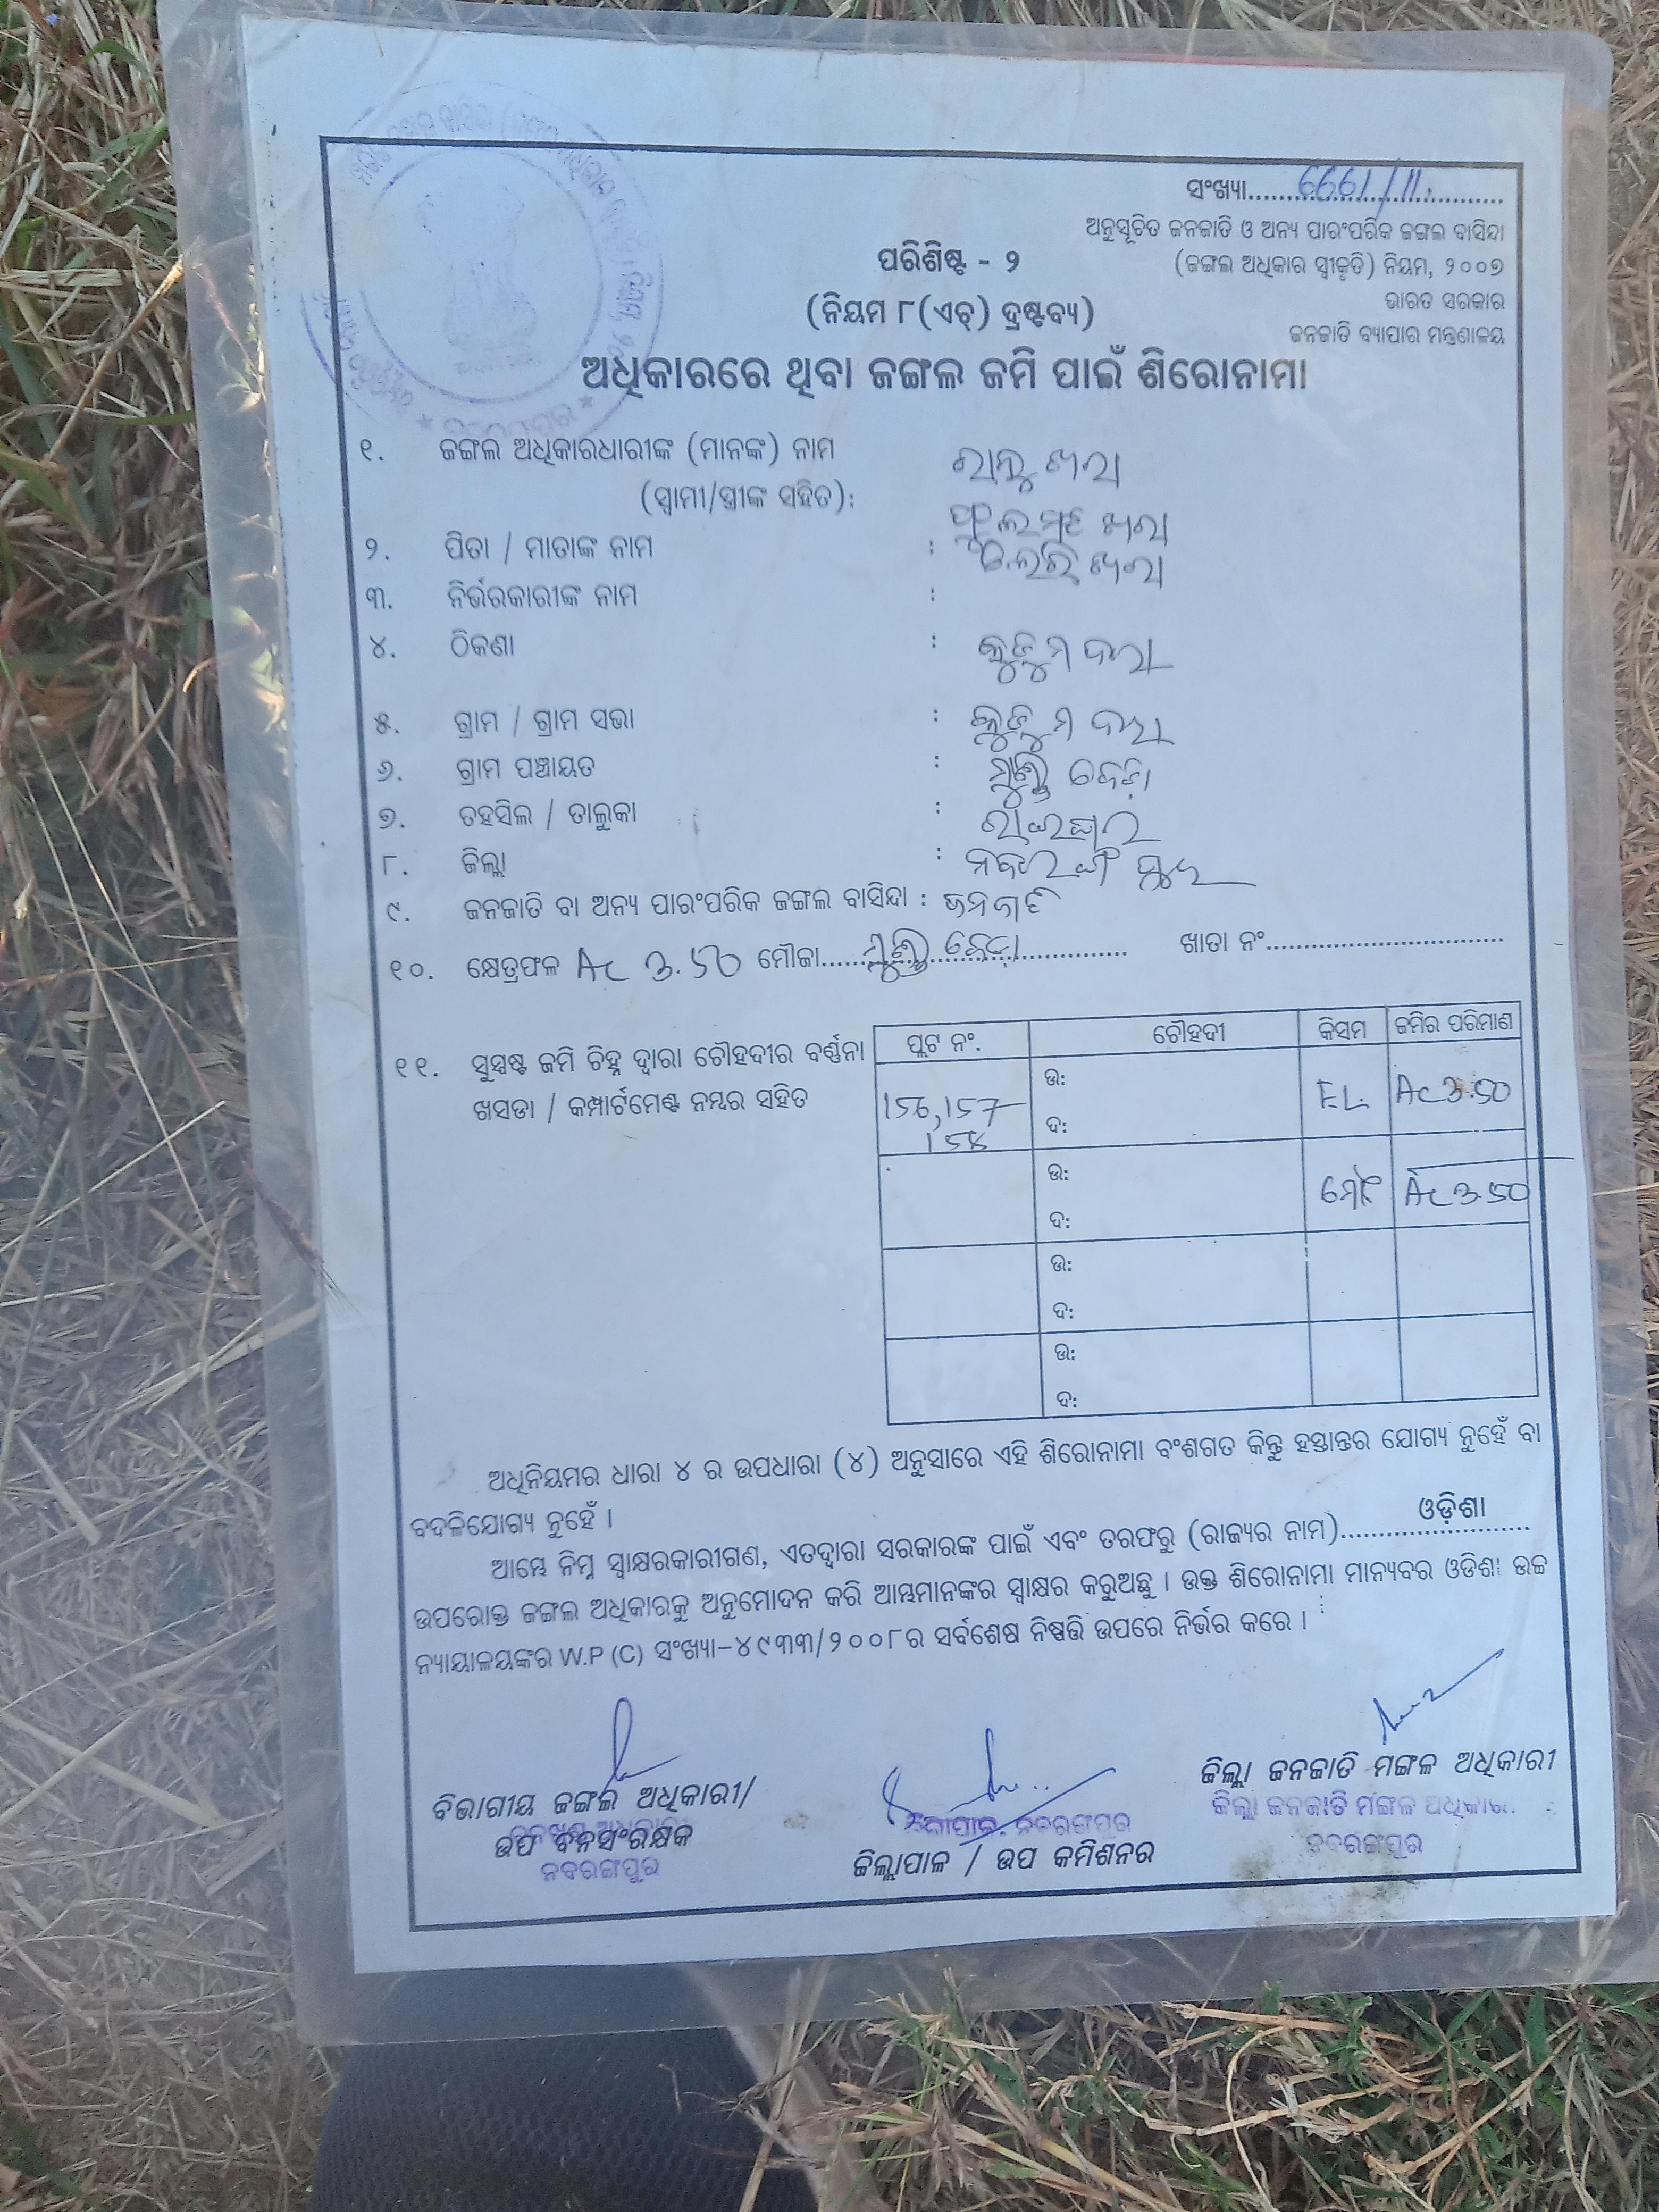 ସଂଖ୍ୟା....6661/11.
ଅନୁସୂଚିତ ଜନଜାତି ଓ ଅନ୍ୟ ପାରଂପରିକ ଜଙ୍ଗଲ ବାସିନ୍ଦା
ପରିଶିଷ୍ଟ - ୨
(ଜଙ୍ଗଲ ଅଧିକାର ସ୍ୱୀକୃତି) ନିୟମ, ୨୦୦୭
ଭାରତ ସରକାର
(ନିୟମ ୮(ଏଚ୍) ଦ୍ରଷ୍ଟବ୍ୟ)
ଜନଜାତି ବ୍ୟାପାର ମନ୍ତ୍ରଣାଳୟ
ଅଧିକାରରେ ଥିବା ଜଙ୍ଗଲ ଜମି ପାଇଁ ଶିରୋନାମା
୧. ଜଙ୍ଗଲ ଅଧିକାରଧାରୀଙ୍କ (ମାନଙ୍କ) ନାମ
(ସ୍ୱାମୀ/ସ୍ତ୍ରୀଙ୍କ ସହିତ):
୨. ପିତା / ମାତାଙ୍କ ନାମ :
୩. ନିର୍ଭରକାରୀଙ୍କ ନାମ :
୪. ଠିକଣା :
୫. ଗ୍ରାମ / ଗ୍ରାମ ସଭା :
୬. ଗ୍ରାମ ପଞ୍ଚାୟତ :
୭. ତହସିଲ / ତାଲୁକା : ରାଇଘର
୮. ଜିଲ୍ଲା : ନବରଙ୍ଗପୁର
୯. ଜନଜାତି ବା ଅନ୍ୟ ପାରଂପରିକ ଜଙ୍ଗଲ ବାସିନ୍ଦା : ଜନଜାତି
୧୦. କ୍ଷେତ୍ରଫଳ Ac 3.50 ମୌଜା.... ଖାତା ନଂ....
ପ୍ଲଟ ନଂ. ଚୌହଦୀ କିସମ ଜମିର ପରିମାଣ
୧୧. ସୁସ୍ପଷ୍ଟ ଜମି ଚିହ୍ନ ଦ୍ୱାରା ଚୌହଦୀର ବର୍ଣ୍ଣନା
ଖସଡା / କମ୍ପାର୍ଟମେଣ୍ଟ ନମ୍ବର ସହିତ
156,157 ଉ: EL. Ac 3.50
ଦ:
ଉ: ମୋଟ Ac 3.50
ଦ:
ଉ:
ଦ:
ଉ:
ଦ:
ଅଧିନିୟମର ଧାରା ୪ ର ଉପଧାରା (୪) ଅନୁସାରେ ଏହି ଶିରୋନାମା ବଂଶଗତ କିନ୍ତୁ ହସ୍ତାନ୍ତର ଯୋଗ୍ୟ ନୁହେଁ ବା
ବଦଳିଯୋଗ୍ୟ ନୁହେଁ ।
ଆମ୍ଭେ ନିମ୍ନ ସ୍ୱାକ୍ଷରକାରୀଗଣ, ଏତଦ୍ୱାରା ସରକାରଙ୍କ ପାଇଁ ଏବଂ ତରଫରୁ (ରାଜ୍ୟର ନାମ)....ଓଡ଼ିଶା....
ଉପରୋକ୍ତ ଜଙ୍ଗଲ ଅଧିକାରକୁ ଅନୁମୋଦନ କରି ଆମ୍ଭମାନଙ୍କର ସ୍ୱାକ୍ଷର କରୁଅଛୁ । ଉକ୍ତ ଶିରୋନାମା ମାନ୍ୟବର ଓଡିଶା ଉଚ୍ଚ
ନ୍ୟାୟାଳୟଙ୍କର W.P (C) ସଂଖ୍ୟା-୪୯୩୩/୨୦୦୮ର ସର୍ବଶେଷ ନିଷ୍ପତ୍ତି ଉପରେ ନିର୍ଭର କରେ ।
ବିଭାଗୀୟ ଜଙ୍ଗଲ ଅଧିକାରୀ/
ଉପ ବନସଂରକ୍ଷକ
ନବରଙ୍ଗପୁର
ନବରଙ୍ଗପୁର
ଜିଲ୍ଲାପାଳ / ଉପ କମିଶନର
ଜିଲ୍ଲା ଜନଜାତି ମଙ୍ଗଳ ଅଧିକାରୀ
ଜିଲ୍ଲା ଜନଜାତି ମଙ୍ଗଳ ଅଧିକାରୀ
ନବରଙ୍ଗପୁର